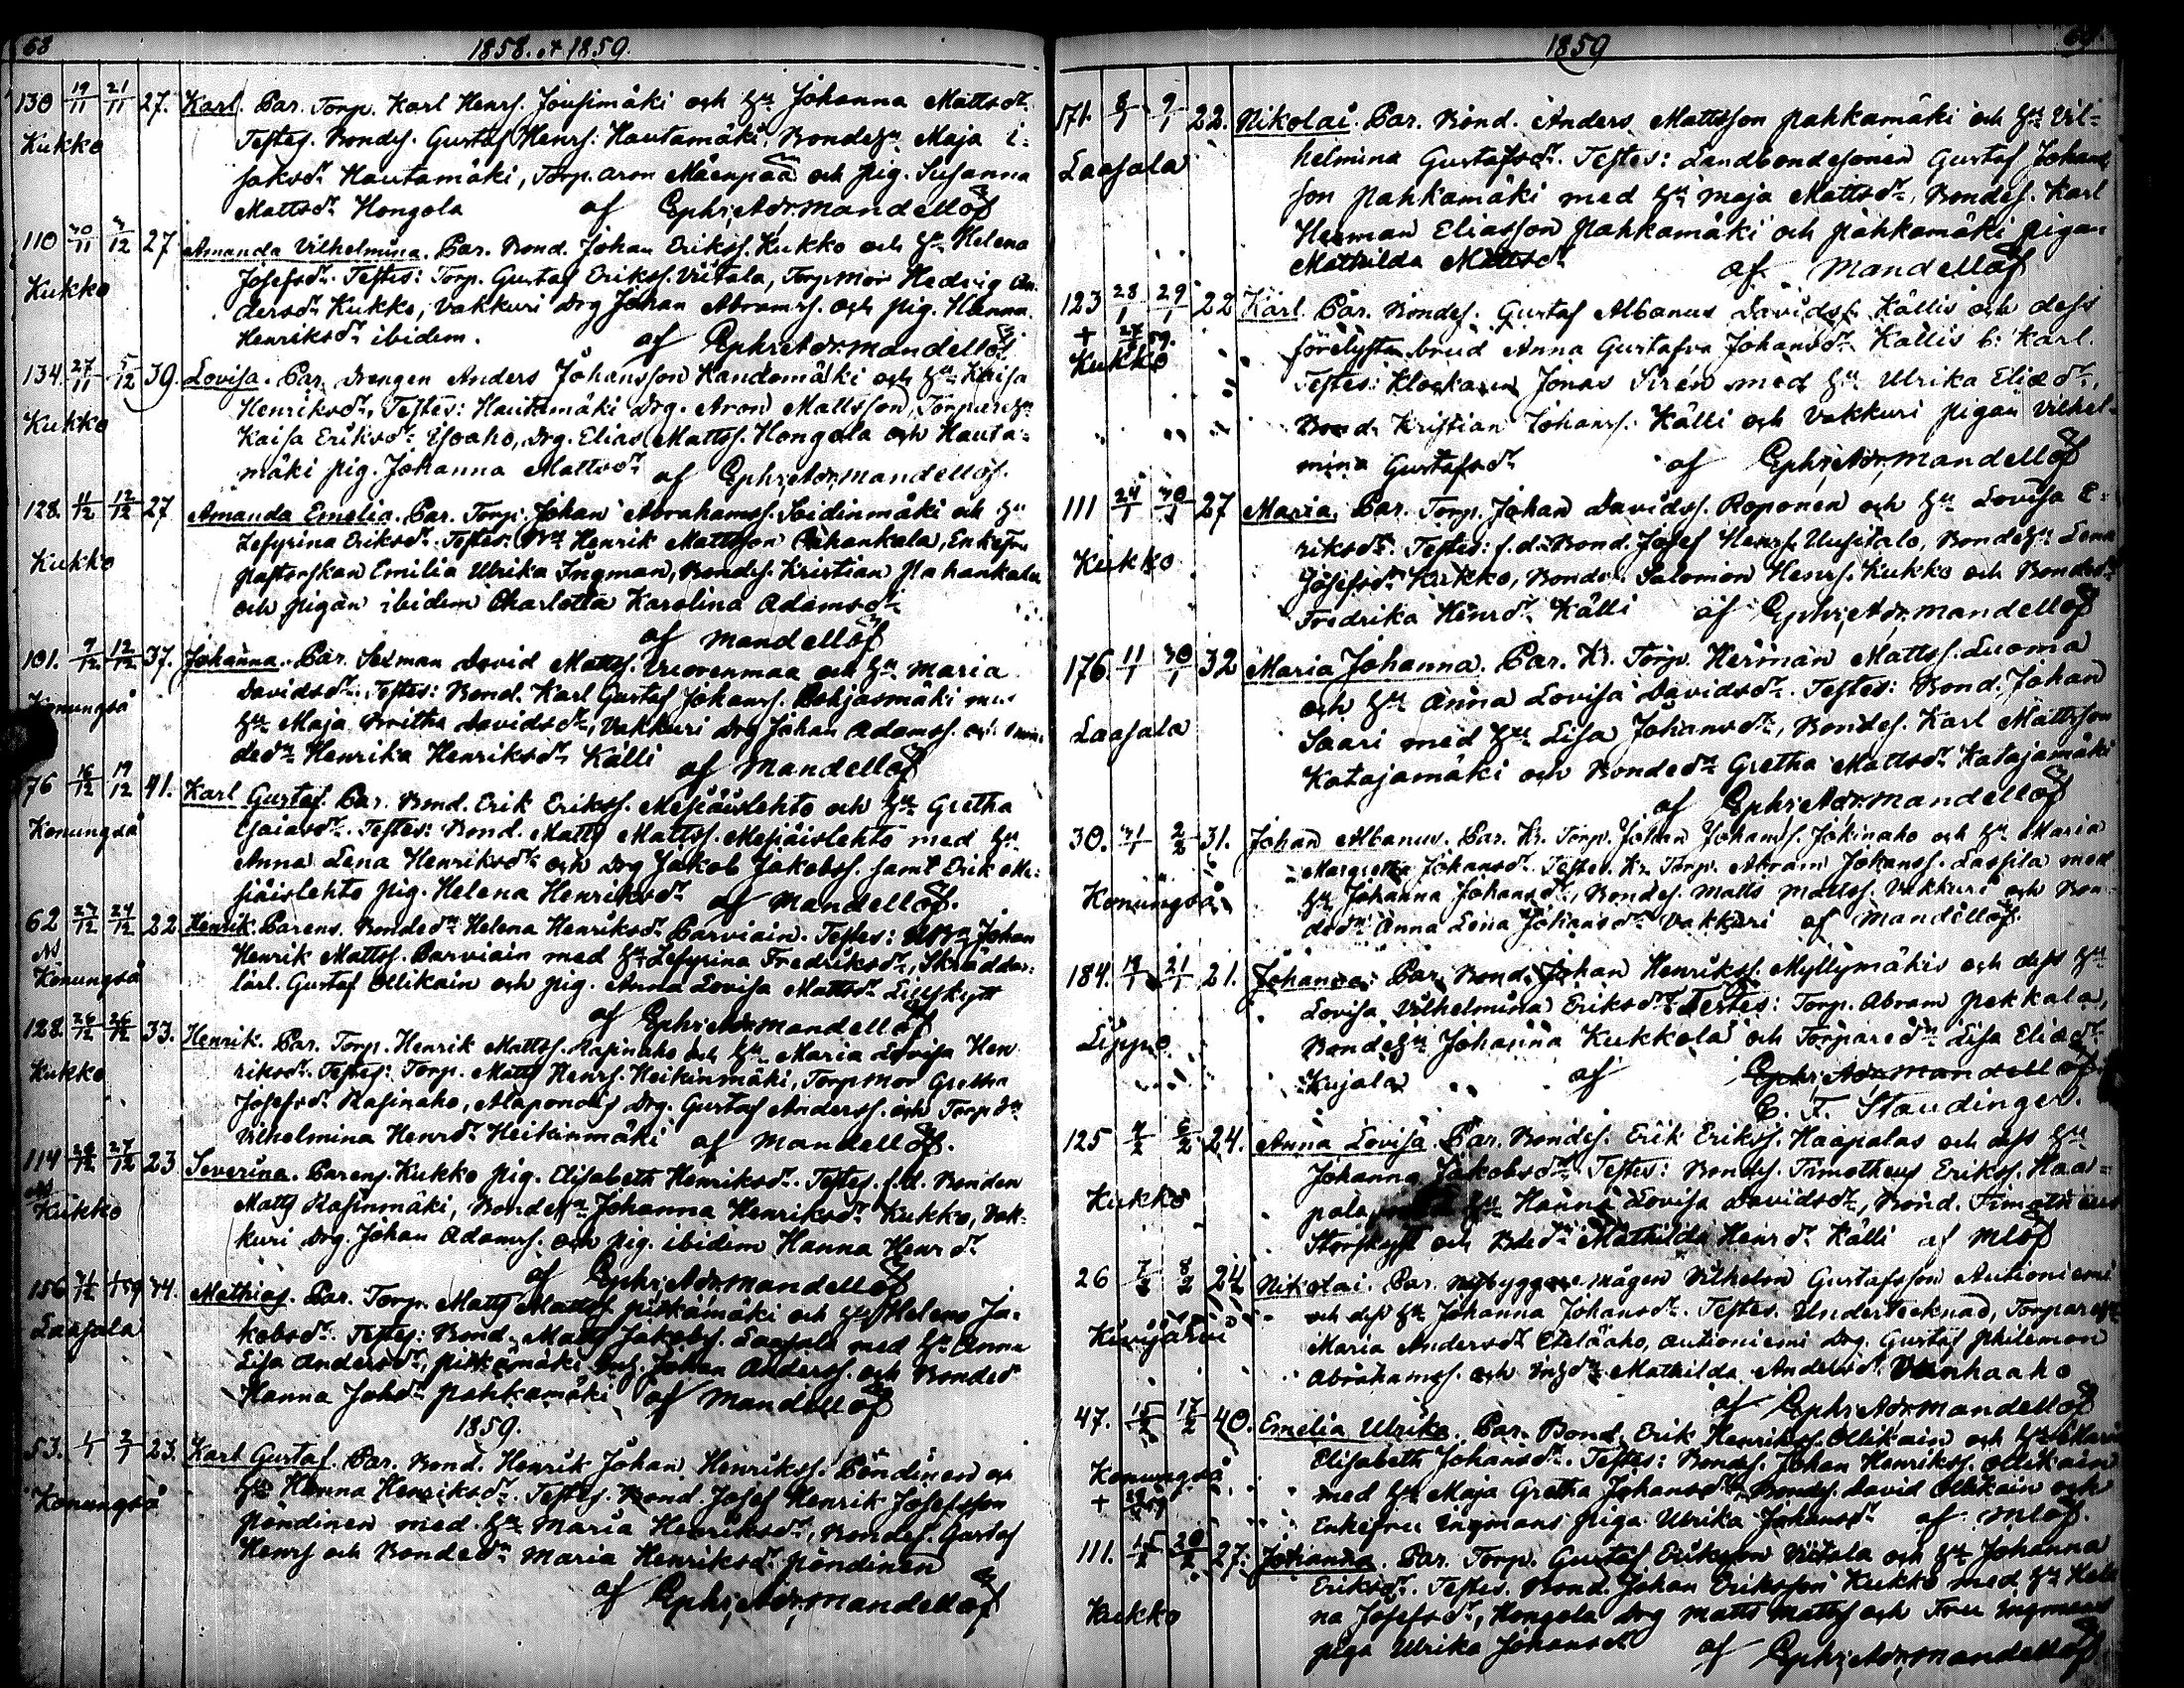 68
1858. et 1859.
130 19/11 21/11 27. Karl. Par. Torp. Karl Henrs. Jousimäki och Hu Johanna Mattsdr
Kukko Testes. Bondes. Gustaf Henrs. Hautamäki, Bondehu Maja I-
saksdr Hautamäki, Torp. Aron Mäenpää och pig. Susanna
Mattsdr Hongola af Ephr. Adr. Mandellöf
110 30/11 4/12 27 Amanda Vilhelmina. Par. Bond. Johan Erikss. Kukko och Hu Helena
Josefsdr. Testes: Torp. Gustaf Erikss. Viitala, Torp.mor Hedvig An-
Kukko dersdr Kukko, Vakkuri Drg Johan Abramss. och pig. Hanna
Henriksdr ibidem. af Ephr. Adr. Mandellöf
134. 27/11 5/12 39. Lovisa. Par. Drengen Anders Johansson Kandomäki och Hu Kaisa
Henriksdr. Testes: Hautamäki Drg. Aron Mattsson, Torparehu
Kukko Kaisa Eriksdr Isoaho, Drg. Elias Mattss. Hongola och Hauta-
mäki pig. Johanna Mattsdr af Ephr. Adr. Mandellöf.
128. 11/12 12/12 27 Amanda Emelia. Par. Torp. Johan Abrahamss. Soidinmäki och Hu
Zefyrina Eriksdr. Testes: Henrik Mattsson Pahankala, Enkefru
Kukko pastorskan Emilia Ulrika Ingman, Bondes. Kristian Pahankala
och pigan ibidem Charlotta Karolina Adamsdr
af Mandellöf
101. 9/12 12/12 37. Johanna. Par. Sexman David Mattss. Vuorenmaa och Hu Maria
Davidsdr. Testes: Bond. Karl Gustaf Johanss. Pohjasmäki med
Konungså Hu Maja Britha Davidsdr, Vakkuri Drg Johan Adamss. och
dedr Henrika Henriksdr Källi af Mandellöf
76 16/12 19/12 41. Karl Gustaf. Par. Bond. Erik Erikss. Mesiäislehto och Hu Gretha
Esaiasdr. Testes: Bond. Matts Mattss. Mesiäislehto med Hu
Konungså Anna Lena Henriksdr och Drg Jakob Jakobss. samt Erik Me-
siäislehto pig. Helena Henriksdr af Mandellöf.
62 24/12 22 Henrik. Parens. Bondedr Helena Henriksdr Parviain. Testes: Johan
Henrik Mattss. Parviain med Hu Zefyrina Fredriksdr, Skräddar-
Konungså lärl. Gustaf Ollikain och pig. Anna Lovisa Mattsdr Lillskytt
af Ephr. Adr. Mandellöf
128. 26/12 26/12 33. Henrik. Par. Torp. Henrik Mattss. Rasinaho och Hu Maria Lovisa Hen-
riksdr. Testes: Torp. Matts Henrs. Heikinmäki, Torp.mor Gretha
Kukko Josefsdr Rasinaho, Alaponois Drg. Gustaf Anderss. och Torp.dr
Vilhelmina Henrdr Heikinmäki af Mandellöf.
114 27/12 23 Severina. Parens. Kukko pig. Elisabeth Henriksdr. Testes. f.d. Bonden
Matts Rasinmäki, Bondehu Johanna Henriksdr Kukko, Vak-
Kukko kuri Drg. Johan Adamss. och pig. ibidem Hanna Henrdr
af Ephr. Adr. Mandellöf
156 31/12 1/1 59 44. Mathias. Par. Torp. Matts Mattss. Pitkämäki och Hu Helena Ja-
kobsdr. Testes: Bond. Matts Jakobss. Laasala med Hu Anna
Laasala Lisa Andersdr, Pitkämäki Johan Anderss. och Bondedr
Hanna Johdr Pahkamäki af Mandellöf
1859.
53. 1/1 2/1 23. Karl Gustaf. Par. Bond. Henrik Johan Henrikss. Pöndinen och
Hu Hanna Henriksdr. Testes. Bond. Josef Henrik Josefsson
Konungså Pöndinen med Hu Maria Henriksdr, Bondes. Gustaf
Henrs och Bondedr Maria Henriksdr Pöndinen
af Ephr. Adr. Mandellöf
1859
69
171. 8/1 9/1 22. Nikolai. Par. Bond. Anders Mattsson Pahkamäki och Hu Vil-
helmina Gustafsdr. Testes: Landbondesonen Gustaf Johans-
Laasala son Pahkamäki med Hu Maja Mattsdr, Bondes. Karl
Herman Eliasson Pahkamäki och Pahkamäki pigan
Mathilda Mattsdr af Mandellöf
123 28/1 29/1 22 Karl. Par. Bondes. Gustaf Albanus Davidss. Källis och dess
+ 27/ 59. förelysta brud Anna Gustafva Johansdr Källis b: Karl.
Kukko Testes: Klockaren Jonas Sirén med Hu Ulrika Eliedr,
Bond. Kristian Johanss. Källi och Vakkuri pigan Vilhel-
mina Gustafsdr af Ephr. Adr. Mandellöf
111 24/1 30/1 27 Maria. Par. Torp. Johan Davidss. Roponen och Hu Lovisa E-
riksdr. Testes: f.d. Bond. Josef Henrs. Uusitalo, Bondehu Lena
Kukko Josefsdr Kukko, Bondes. Salomon Henrs. Kukko och Bondedr
Fredrika Henrdr Källi af Ephr. Adr. Mandellöf
176. 11/1 30/1 32 Maria Johanna. Par. Kr. Torp. Herman Mattss. Luoma
och Hu Anna Lovisa Davidsdr. Testes: Bond. Johan
Laasala Saari med Hu Lisa Johansdr, Bondes. Karl Mattsson
Katajamäki och Bondedr Gretha Mattsdr Katajamäki
af Ephr. Adr. Mandellöf
30. 31/1 2/2 31. Johan Albanus. Par. Kr. Torp. Johan Johanss. Jokinaho och Hu Maria
Margretha Johansdr. Testes. Kr. Torp. Abram Johanss. Lassila med
Konungså Hu Johanna Johansdr, Bondes. Matts Mattss. Vakkuri och Bon-
dedr Anna Lena Johansdr Vakkuri af Mandellöf
184. 19/1 21/1 21. Johanna. Par. Bond. Johan Henrikss. Myllymäkis och dess Hu
Lovisa Vilhelmina Eriksdr. Testes: Torp. Abram Pekkala,
Lippo Bondehu Johanna Kukkola och Torparedr Lisa Eliedr
Kujala af Ephr. Adr. Mandellöf
C. F. Staudinger.
125 4/2 6/2 24. Anna Lovisa. Par. Bondes. Erik Erikss. Haapalas och dess Hu
Johanna Jakobsdr. Testes: Bondes. Timotheus Erikss. Haa-
Kukko pala med Hu Hanna Lovisa Davidsdr, Bond. Timotheus
Storskytt och Bdedr Mathilda Henrdr Källi af Mlöf
26 7/2 8/2 24 Nikolai. Par. Nybyggare mågen Vilhelm Gustafsson Autioniemi
och dess Hu Johanna Johansdr. Testes. Undertecknad, Torparehu
Kivijärvi Maria Andersdr Eteläaho, Autioniemi Drg. Gustaf Philemon
Abrahamss. och Mathilda Andersdr Vanhaaho
af Ephr. Adr. Mandellöf
47. 15/2 17/2 40. Emelia Ulrika. Par. Bond. Erik Henrikss. Ollikain och Hu Maria
Elisabeth Johansdr. Testes: Bondes. Johan Henrikss. Ollikain
Konungså med Hu Maja Gretha Johansdr, Bondes. David Ollikain och
+ 59 Enkefru Ingmans piga Ulrika Johansdr af Mlöf.
111. 15/2 20/2 27. Johanna. Par. Torp. Gustaf Eriksson Viitala och Hu Johanna
Eriksdr. Testes. Bond. Johan Eriksson Kukko med Hu Hele-
Kukko na Josefsdr, Hongola Drg Matts Mattss och Fru Ingmans
piga Ulrika Johansdr af Ephr. Adr. Mandellöf